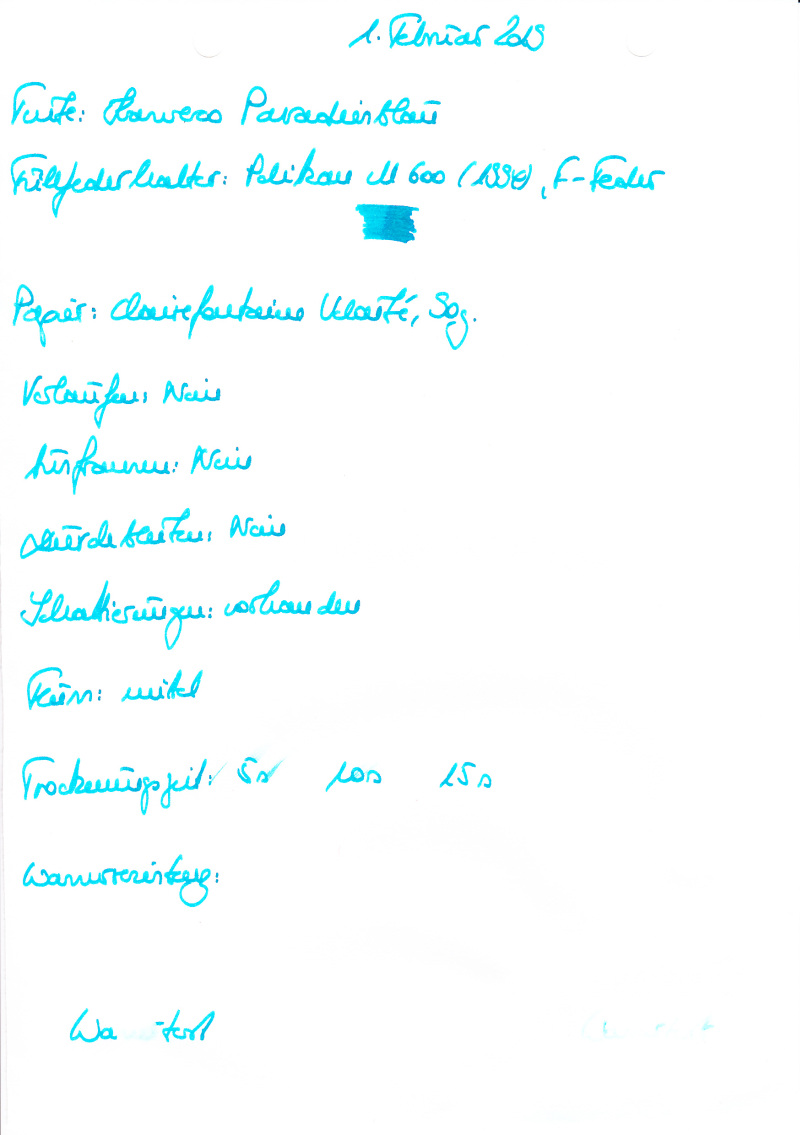 1. Februar 2019
Tinte: Kaweco Paradiesblau
Füllfederhalter: Pelikan M 600 (1990), F-Feder
Papier: Clairefontaine Velouté, 90g.
Verlaufen: Nein
Ausfransen: Nein
Durchbluten: Nein
Schattierungen: vorhanden
Fluss: mittel
Trocknungszeit: 5s 10s 15s
Wasserfestigk.: